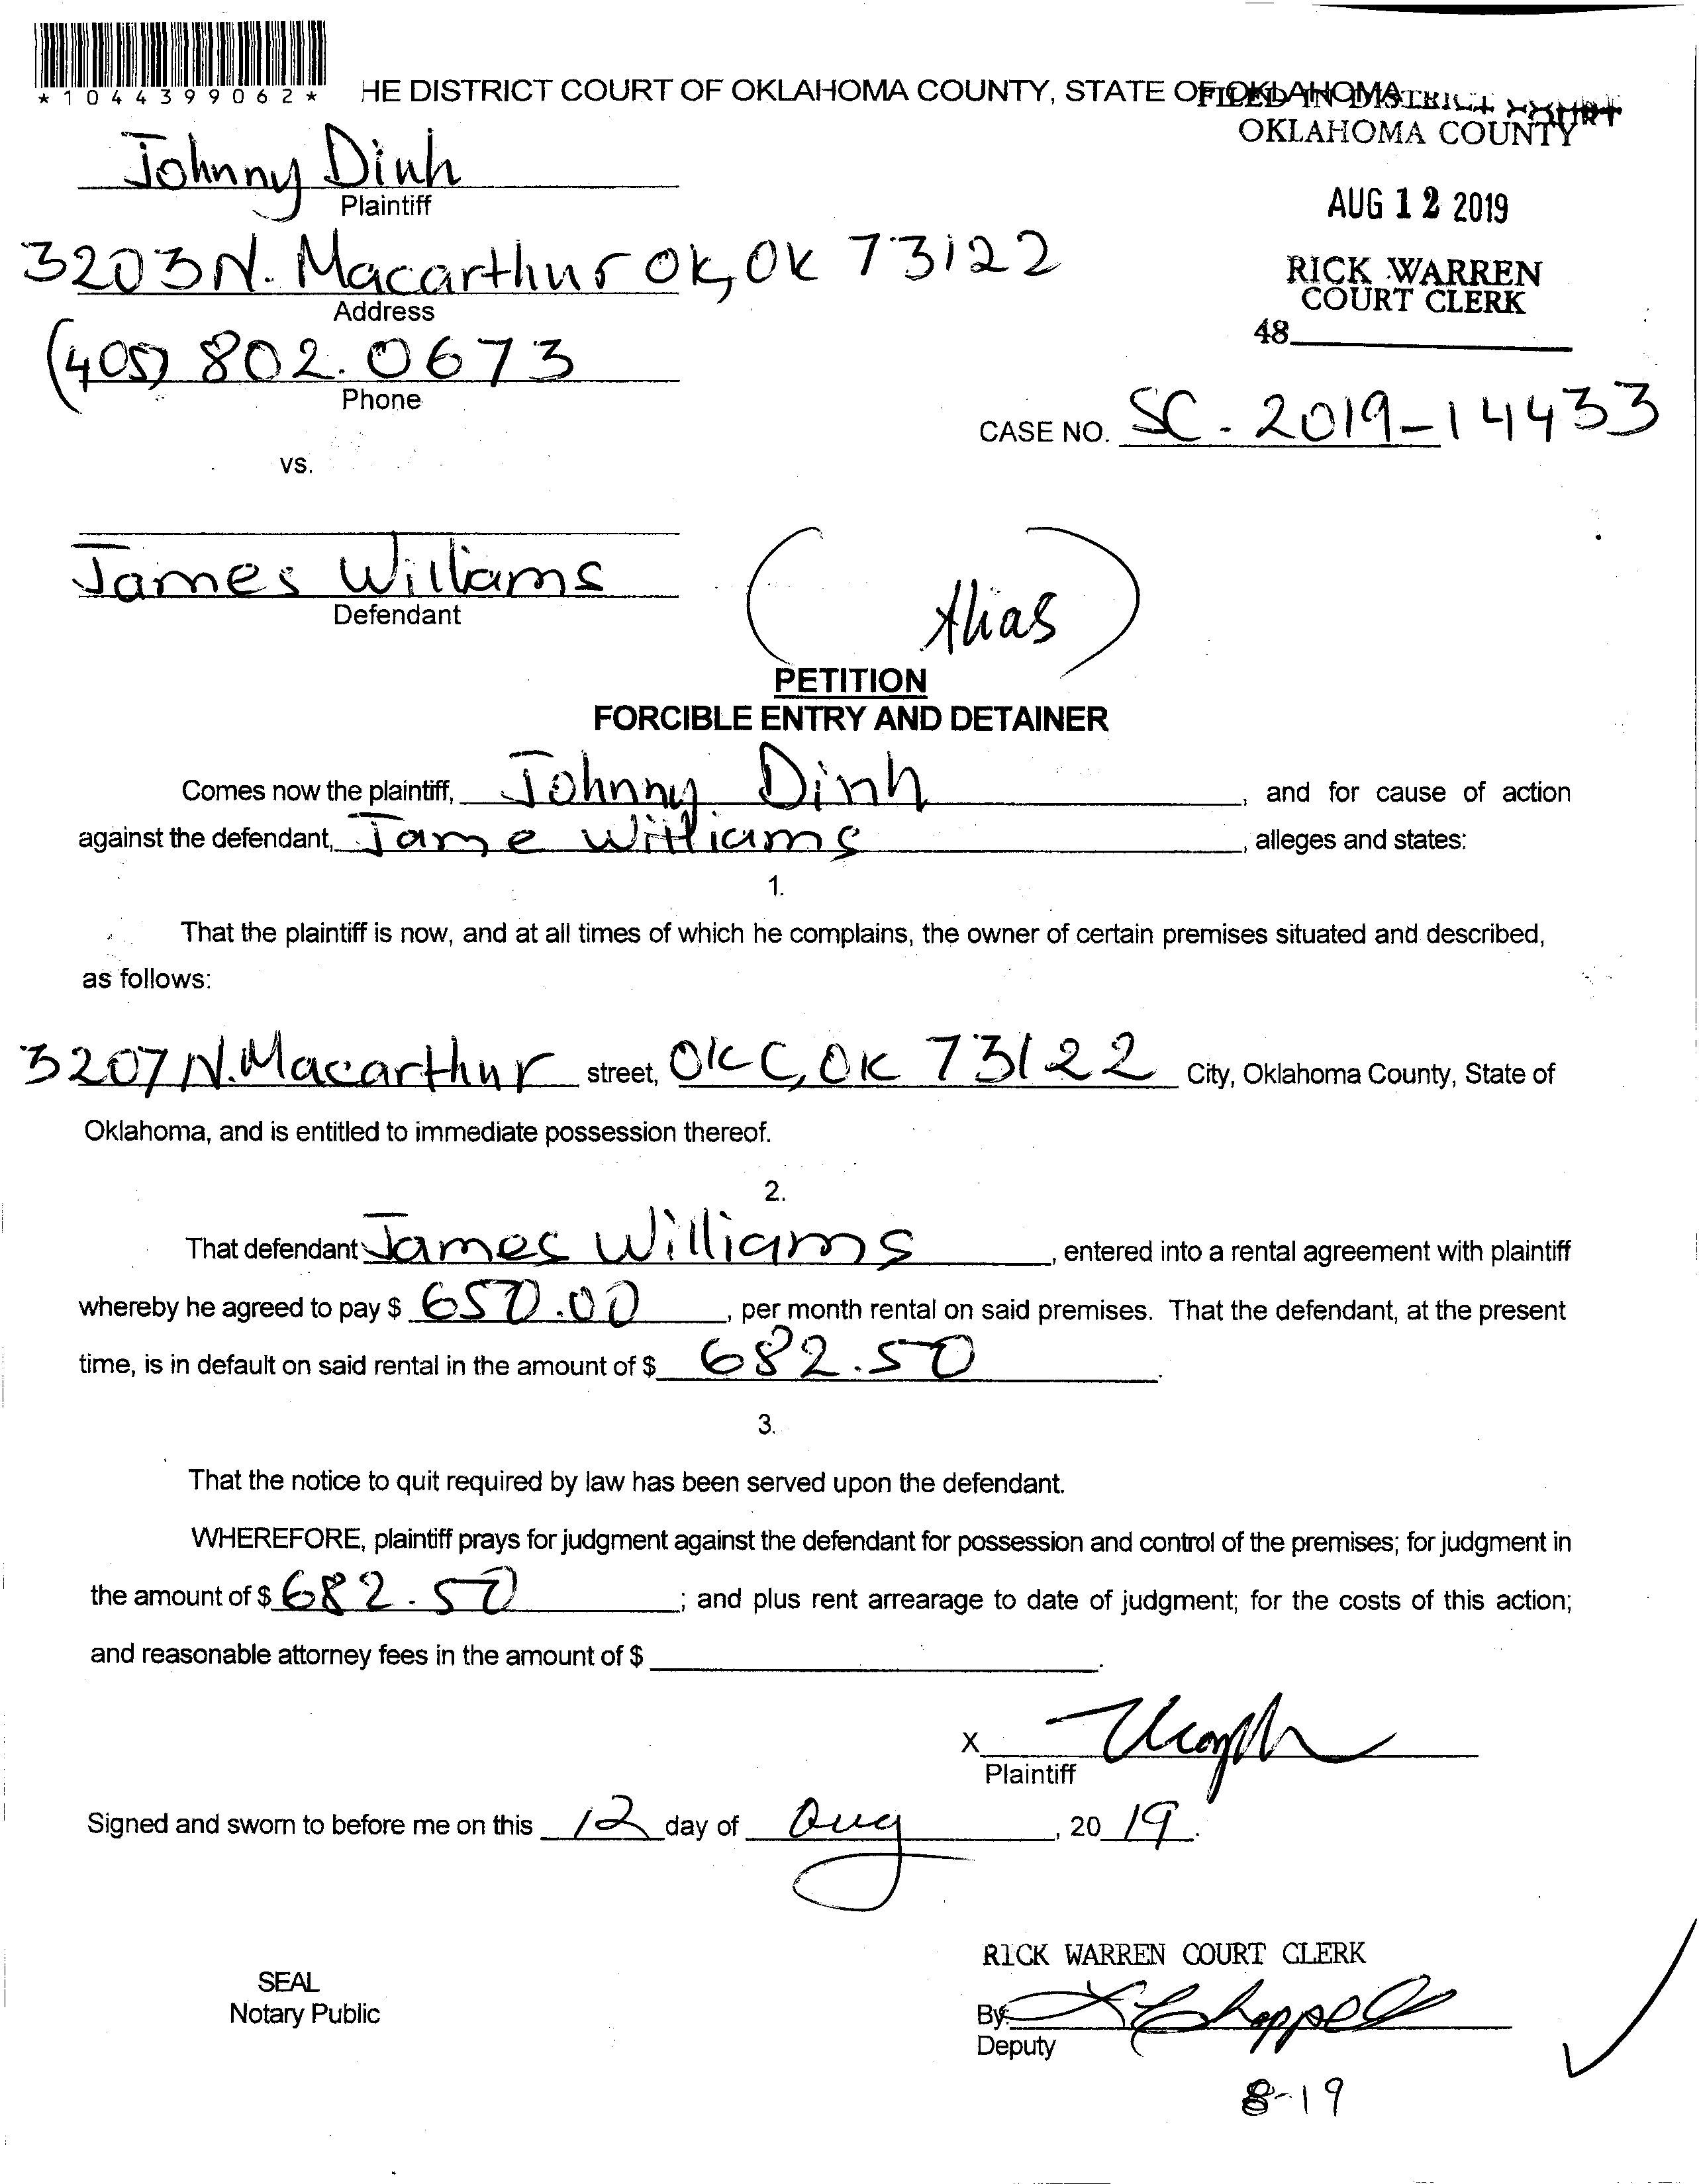 *1044399062*
HE DISTRICT COURT OF OKLAHOMA COUNTY, STATE OF OKLAHOMA
FILED IN DISTRICT COURT
OKLAHOMA COUNTY
Johnny Dinh
Plaintiff
AUG 12 2019
3203 N. Macarthur OK, OK 73122
Address
RICK WARREN
COURT CLERK
48
(405) 802.0673
Phone
CASE NO. SC-2019-14433
vs.
James Williams
Defendant
(Alias)
PETITION
FORCIBLE ENTRY AND DETAINER
Comes now the plaintiff, Johnny Dinh, and for cause of action
against the defendant, Jame Williams, alleges and states:
1.
That the plaintiff is now, and at all times of which he complains, the owner of certain premises situated and described,
as follows:
3207 N. Macarthur street, OKC, OK 73122 City, Oklahoma County, State of
Oklahoma, and is entitled to immediate possession thereof.
2.
That defendant James Williams, entered into a rental agreement with plaintiff
whereby he agreed to pay $ 650.00, per month rental on said premises. That the defendant, at the present
time, is in default on said rental in the amount of $ 682.50.
3.
That the notice to quit required by law has been served upon the defendant.
WHEREFORE, plaintiff prays for judgment against the defendant for possession and control of the premises; for judgment in
the amount of $ 682.50; and plus rent arrearage to date of judgment; for the costs of this action;
and reasonable attorney fees in the amount of $ .
X
Plaintiff
Signed and sworn to before me on this 12 day of Aug, 2019.
RICK WARREN COURT CLERK
SEAL
Notary Public
By: Chappell
Deputy
8-19